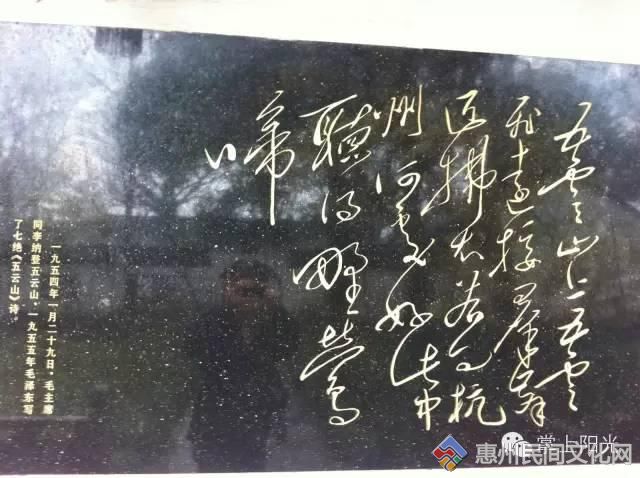 五雲山上五雲
飛遠接群峰
近拂堤若问杭
州何處好此中
聽得野鶯
啼
一九五四年一月二十九日,毛主席
同李纳登五云山。一九五五年毛泽东写
了七绝《五云山》诗。
掌上阳光
惠州民间文化网